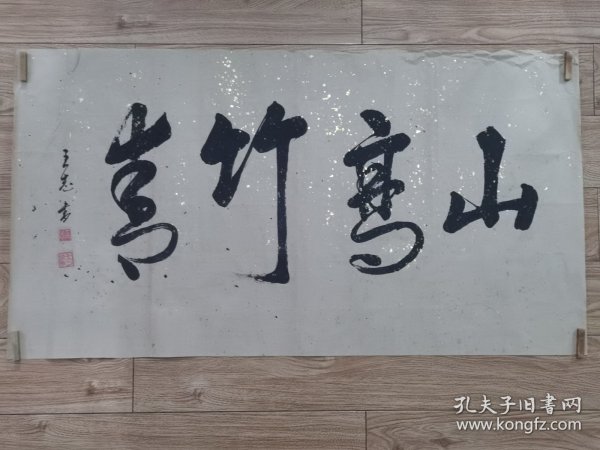 山高竹青
王志书
孔夫子旧書网
www.kongfz.com